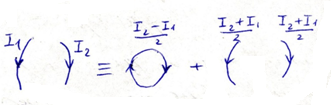 I₁ I₂ ≡ (I₂-I₁)/2 + (I₂+I₁)/2 (I₂+I₁)/2